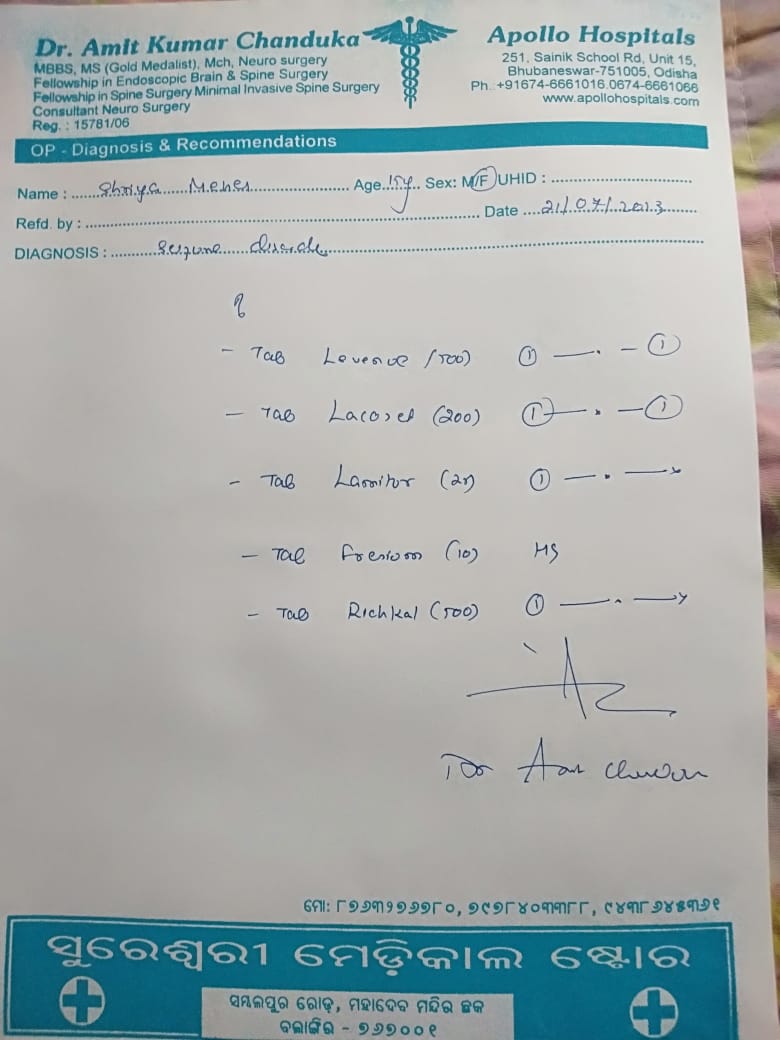 Dr. Amit Kumar Chanduka
MBBS, MS (Gold Medalist), Mch, Neuro surgery
Fellowship in Endoscopic Brain & Spine Surgery
Fellowship in Spine Surgery Minimal Invasive Spine Surgery
Consultant Neuro Surgery
Reg. : 15781/06
Apollo Hospitals
251, Sainik School Rd, Unit 15,
Bhubaneswar-751005, Odisha
Ph. +91674-6661016 0674-6661066
www.apollohospitals.com
OP - Diagnosis & Recommendations
Name : Shriya Meher Age 15y Sex: M/F UHID :
Refd. by : Date 21/07/2023
DIAGNOSIS : Seizure
- Tab (500) 1 — . — 1
- Tab Lacoset (200) 1 — . — 1
- Tab Lamitor 1 — . — x
- Tab (10) HS
- Tab Richkal (500) 1 — . — x
Dr
ମୋ: ୮୨୭୩୨୨୭୨୮୦, ୨୯୨୮୪୦୩୩୮୮, ୯୪୩୮୬୪୫୩୬୧
ସୁରେଶ୍ୱରୀ ମେଡ଼ିକାଲ ଷ୍ଟୋର
ସମ୍ବଲପୁର ରୋଡ଼, ମହାଦେବ ମନ୍ଦିର ଛକ
ବଲାଙ୍ଗିର - ୭୬୭୦୦୧